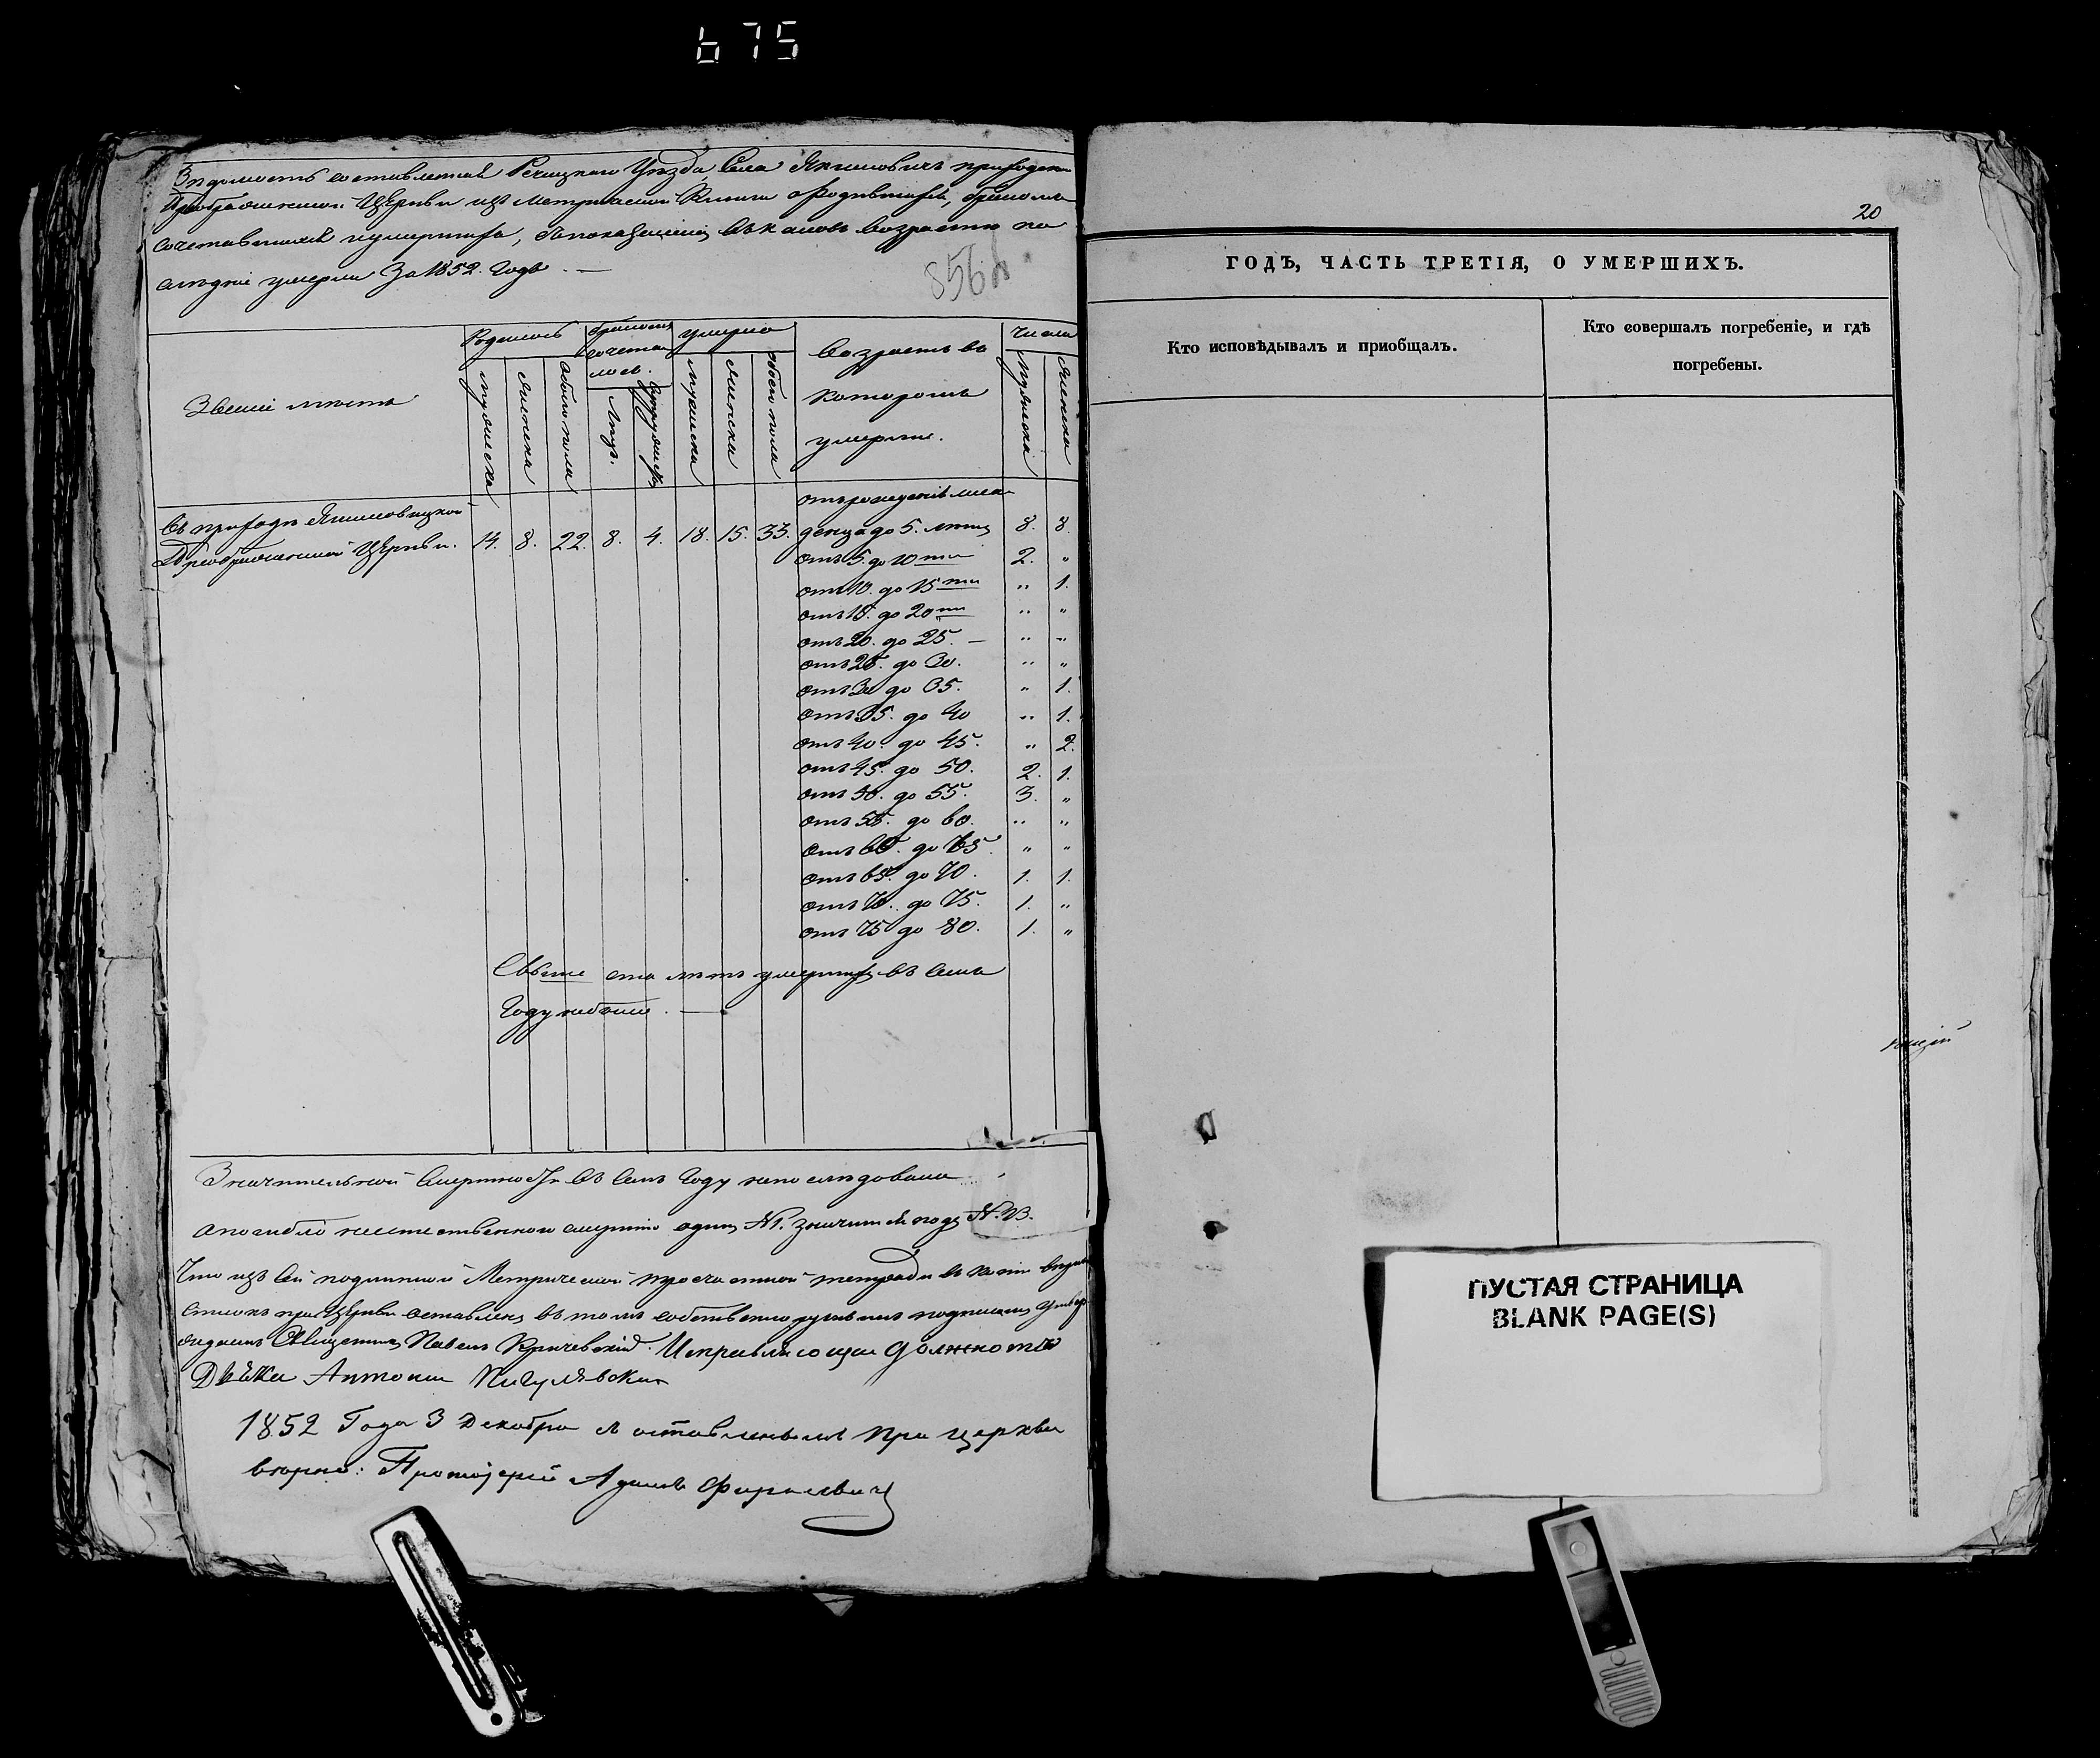 675
Вѣдомость составленная Речицкаго Уѣзда, Села Якимовичъ приходской
Преображенской Церкви изъ Метрической Книги о родившихся, бракомъ
сочетавшихся и умершихъ, съ показаніемъ въ какомъ возрастѣ по
слѣдніе умерли За 1852. Годъ. —
856
Званіе мѣста
Родилось
мужеска
женска
обоего пола
бракомъ сочета лось.
умерло
мужеска
женска
обоего пола
Возрастъ въ
которомъ
умерли.
Числа
мужеска
женска
Въ приходѣ Якимовицкой
Преображенской Церкви.
14. 8. 22. 8. 4. 18. 15. 33.
отъ рожденія мла
денца до 5. лѣтъ 8. 8.
отъ 5. до 10ти 2. „
отъ 10. до 15ти „ 1.
отъ 15. до 20ти „ „
отъ 20. до 25. — „ „
отъ 25. до 30. „ „
отъ 30 до 35. „ 1.
отъ 35. до 40 „ 1.
отъ 40. до 45. „ 2.
отъ 45. до 50. 2. 1.
отъ 50. до 55. 3. „
отъ 55. до 60. „ „
отъ 60. до 65 „ „
отъ 65. до 70. 1. 1.
отъ 70. до 75. 1. „
отъ 75 до 80. 1. „
Свыше ста лѣтъ умершихъ въ семъ
Году небыло. —
Значительной смертности въ семъ Году непослѣдовало
а погибло неестественною смертію одинъ №1. значится подъ №
Что изъ сей подлинной Метрической тетради
списокъ при Церкви оставленъ въ томъ собственноручнымъ подписомъ
Священникъ Павелъ Кричевскій. Исправляющій должность
Дьячка Антоній Пигулевскій
1852 Года 3 Декабря съ оставленнымъ при церкви
вѣрно: Протоіерей Адамъ
20
ГОДЪ, ЧАСТЬ ТРЕТІЯ, О УМЕРШИХЪ.
Кто исповѣдывалъ и пріобщалъ.
Кто совершалъ погребеніе, и гдѣ
погребены.
ПУСТАЯ СТРАНИЦА
BLANK PAGE(S)